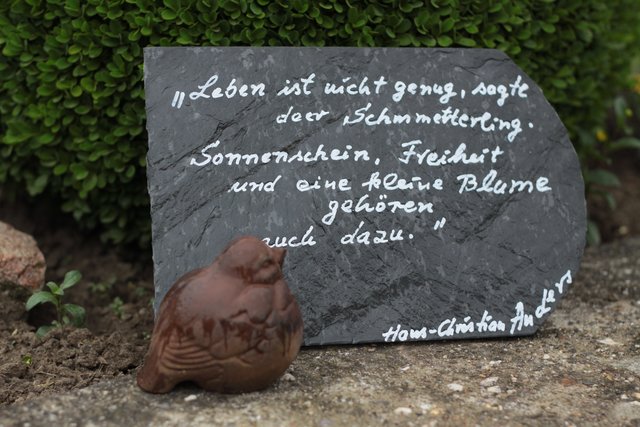 „Leben ist nicht genug, sagte
doer Schmetterling.
Sonnenschein, Freiheit
und eine kleine Blume
gehören
auch dazu."
Hans-Christian Anders